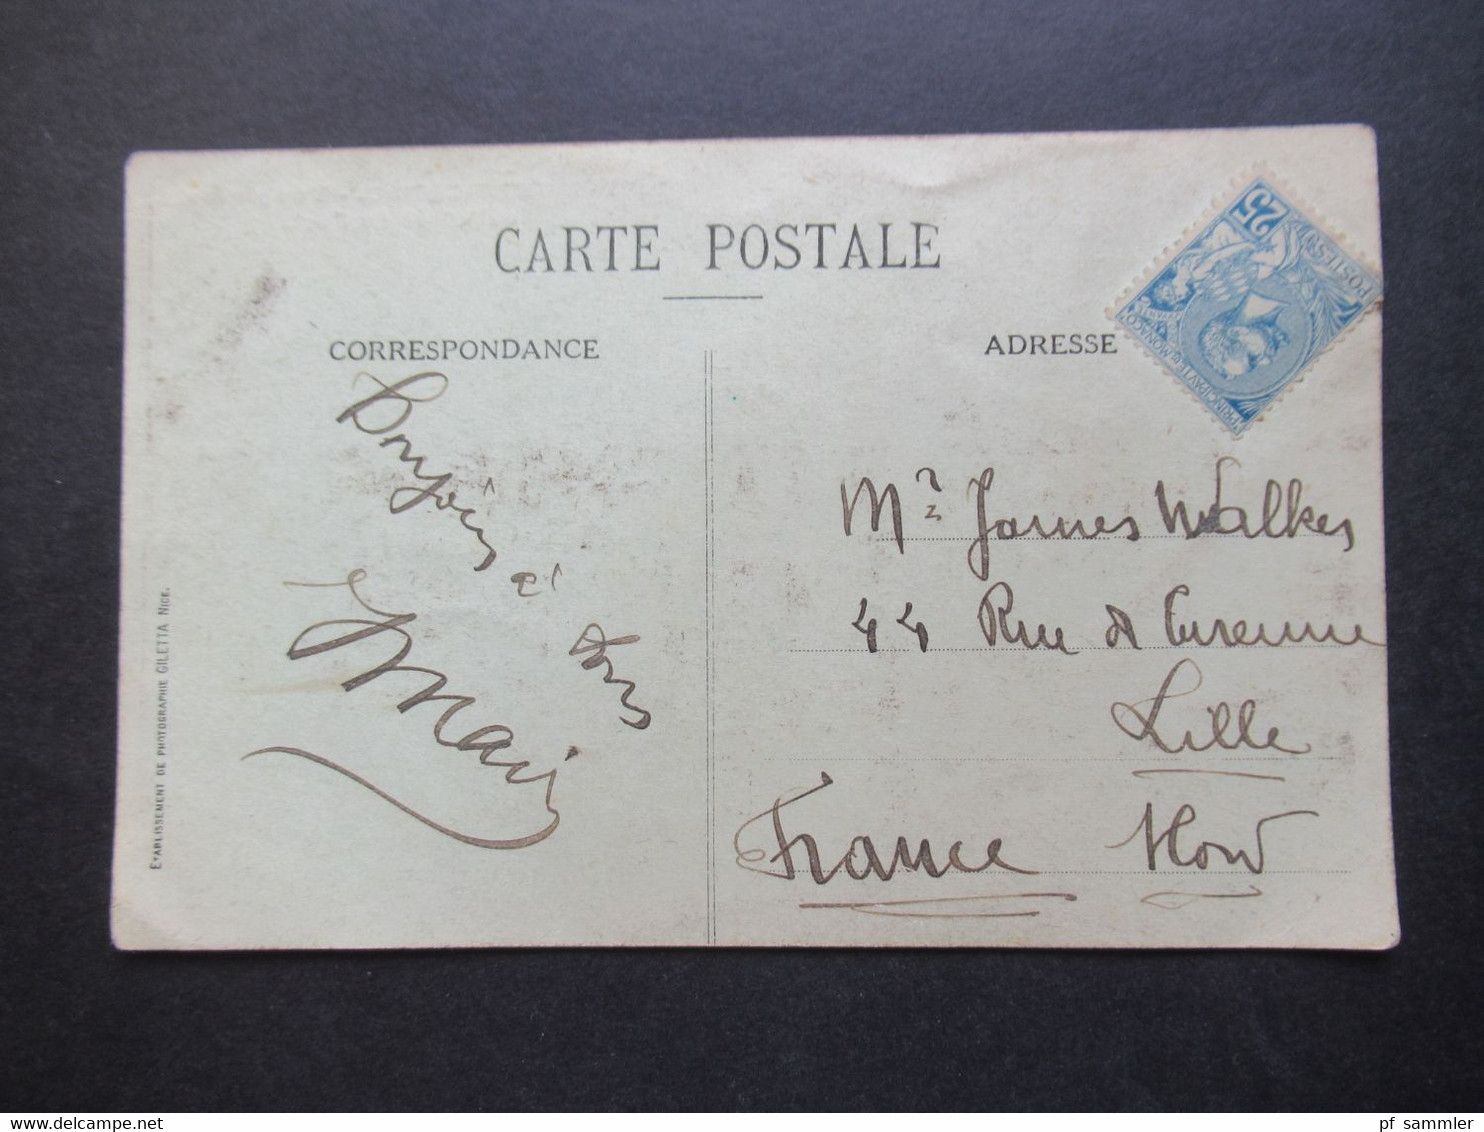 CARTE POSTALE
CORRESPONDANCE
ADRESSE
25
POSTES
PRINCIPAUTÉ DE MONACO
Bonjour
à
tous
Mr James Walker
44 Rue de Turenne
Lille
France Nord
ETABLISSEMENT DE PHOTOGRAPHIE GILETTA NICE.
pf sammler